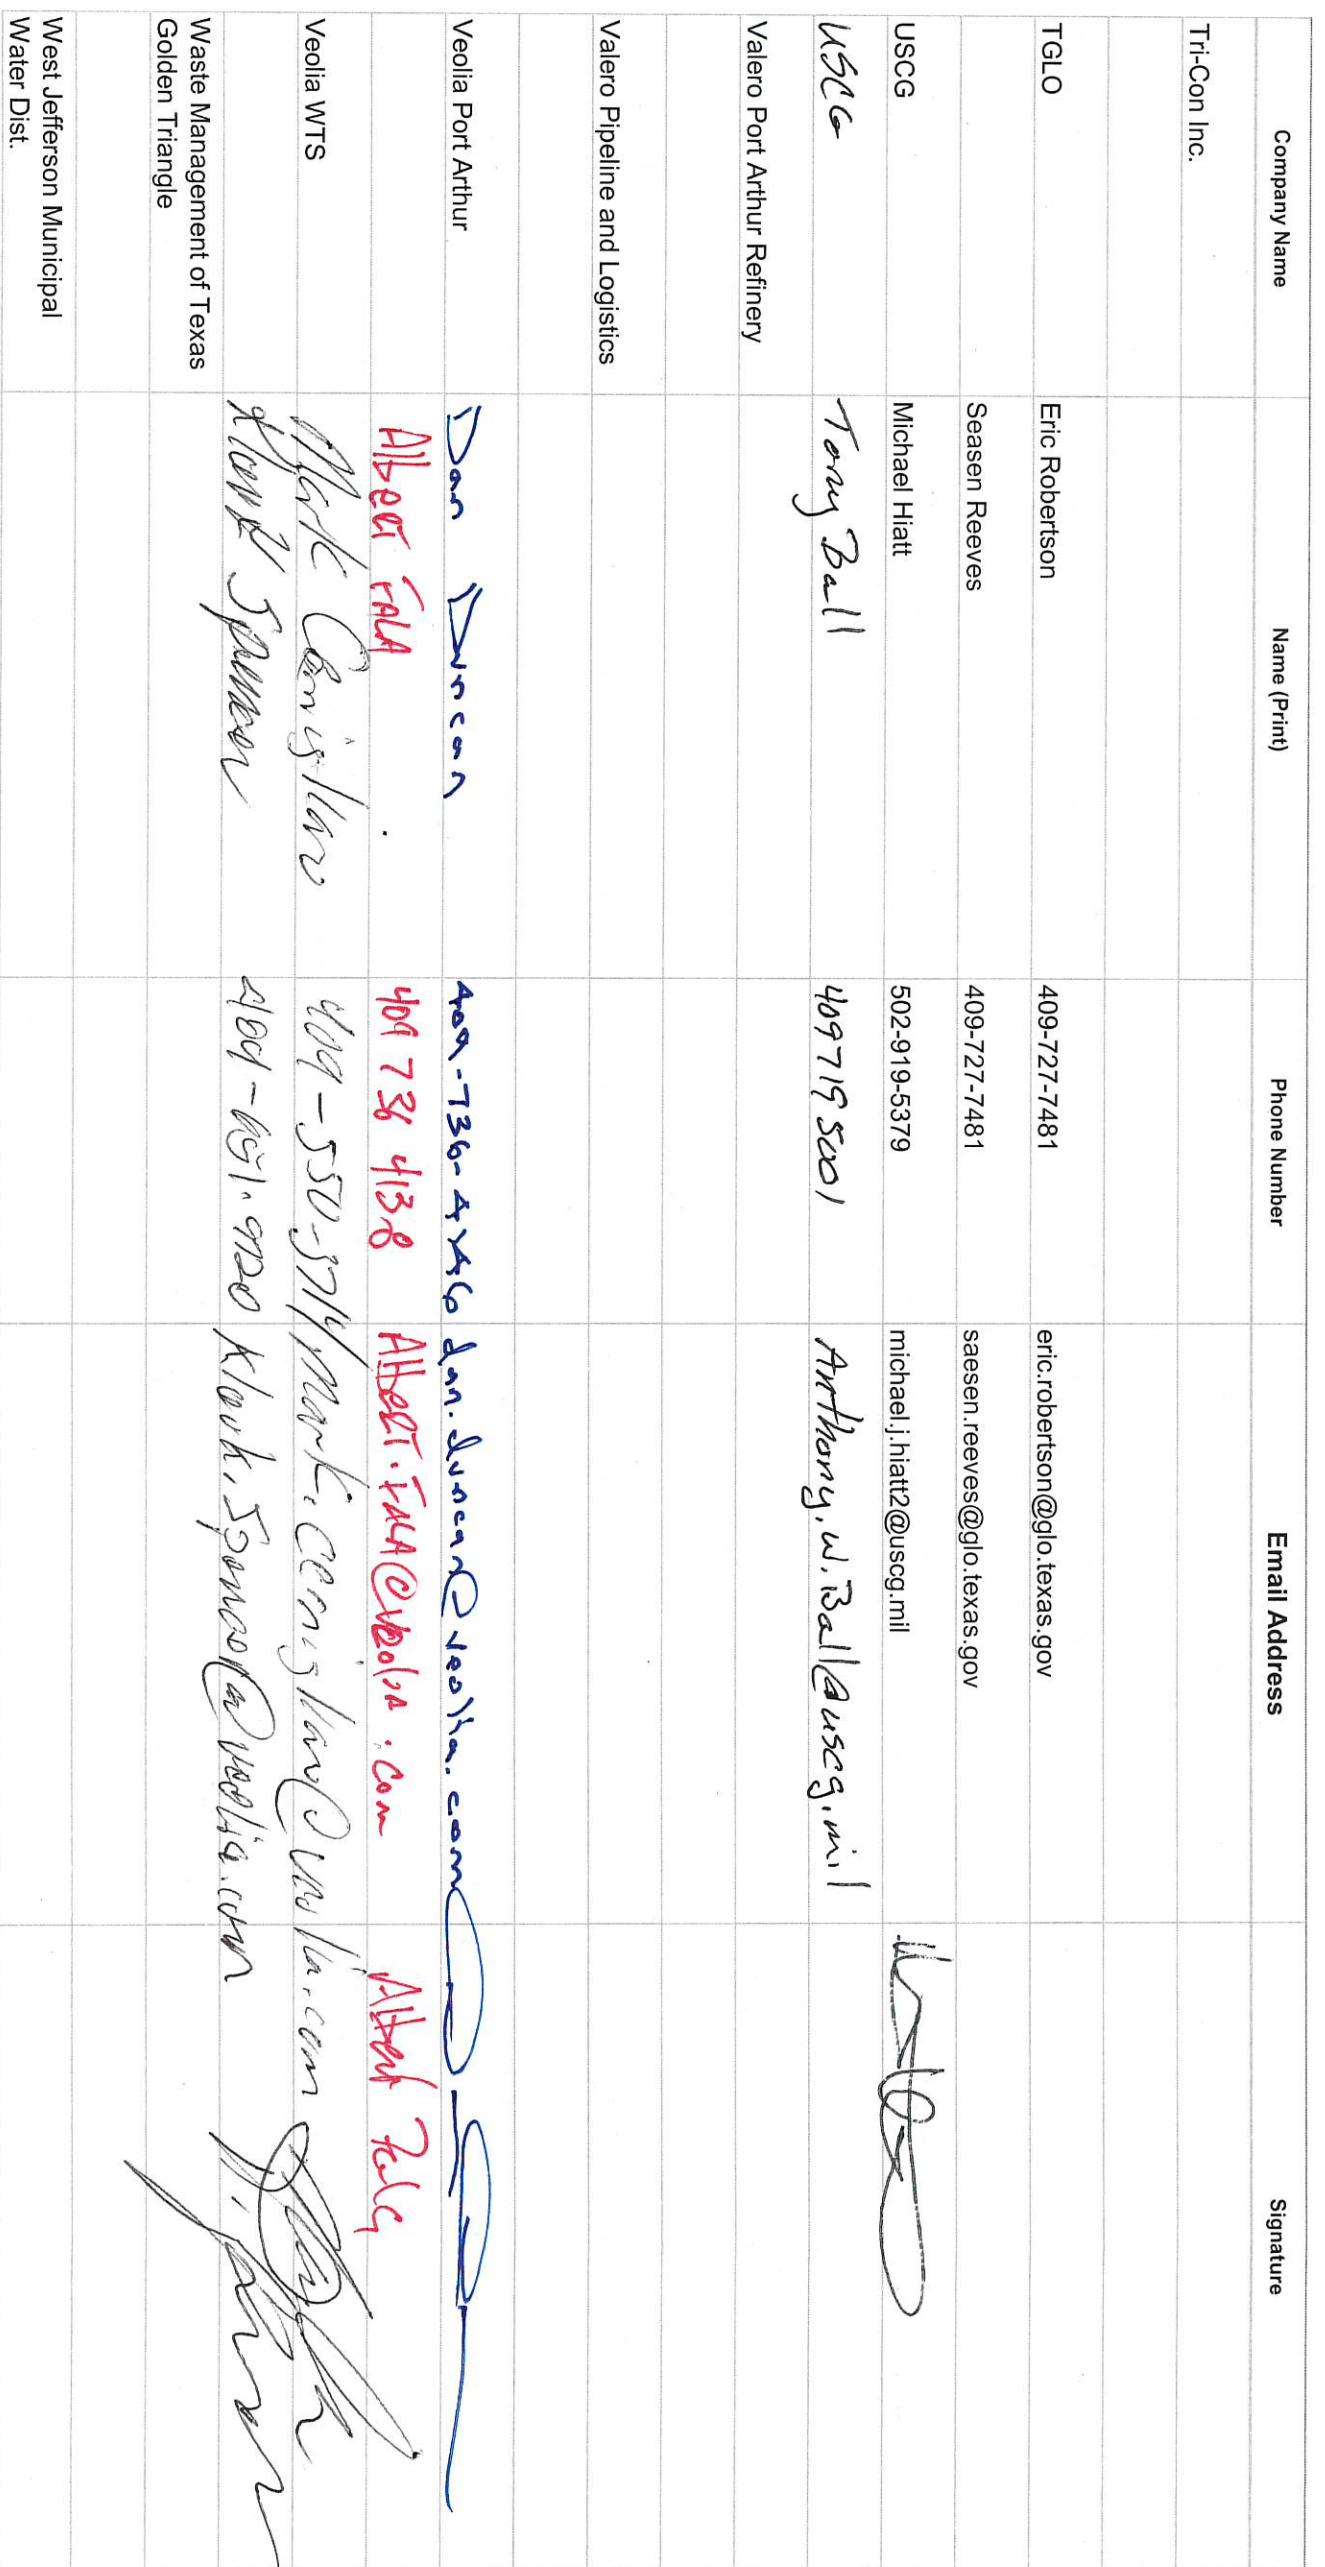 Company Name Name (Print) Phone Number Email Address Signature
Tri-Con Inc.
TGLO Eric Robertson 409-727-7481 eric.robertson@glo.texas.gov
Seasen Reeves 409-727-7481 saesen.reeves@glo.texas.gov
USCG Michael Hiatt 502-919-5379 michael.j.hiatt2@uscg.mil
USCG Tony Ball 4097195001 Anthony.w.Ball@uscg.mil
Valero Port Arthur Refinery
Valero Pipeline and Logistics
Veolia Port Arthur Dan Duncan dan.duncan@veolia.com
Albert FALA 409 736 4138 Albert.FALA@veolia.com Albert Fala
Veolia WTS Mark
409-550-3714
Waste Management of Texas
Golden Triangle
West Jefferson Municipal
Water Dist.